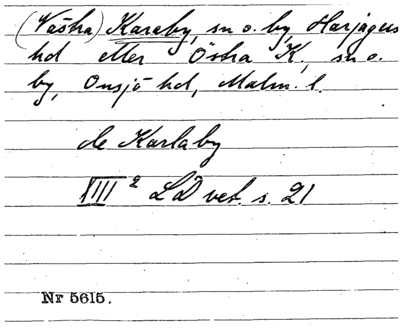 (Västra) Karaby, sn o. by, Harjagers
hd eller Östra K., sn o.
by, Onsjö hd, Malm. l.
de Karlaby
XIII 2 LD vet. s. 21
Nr 5615.